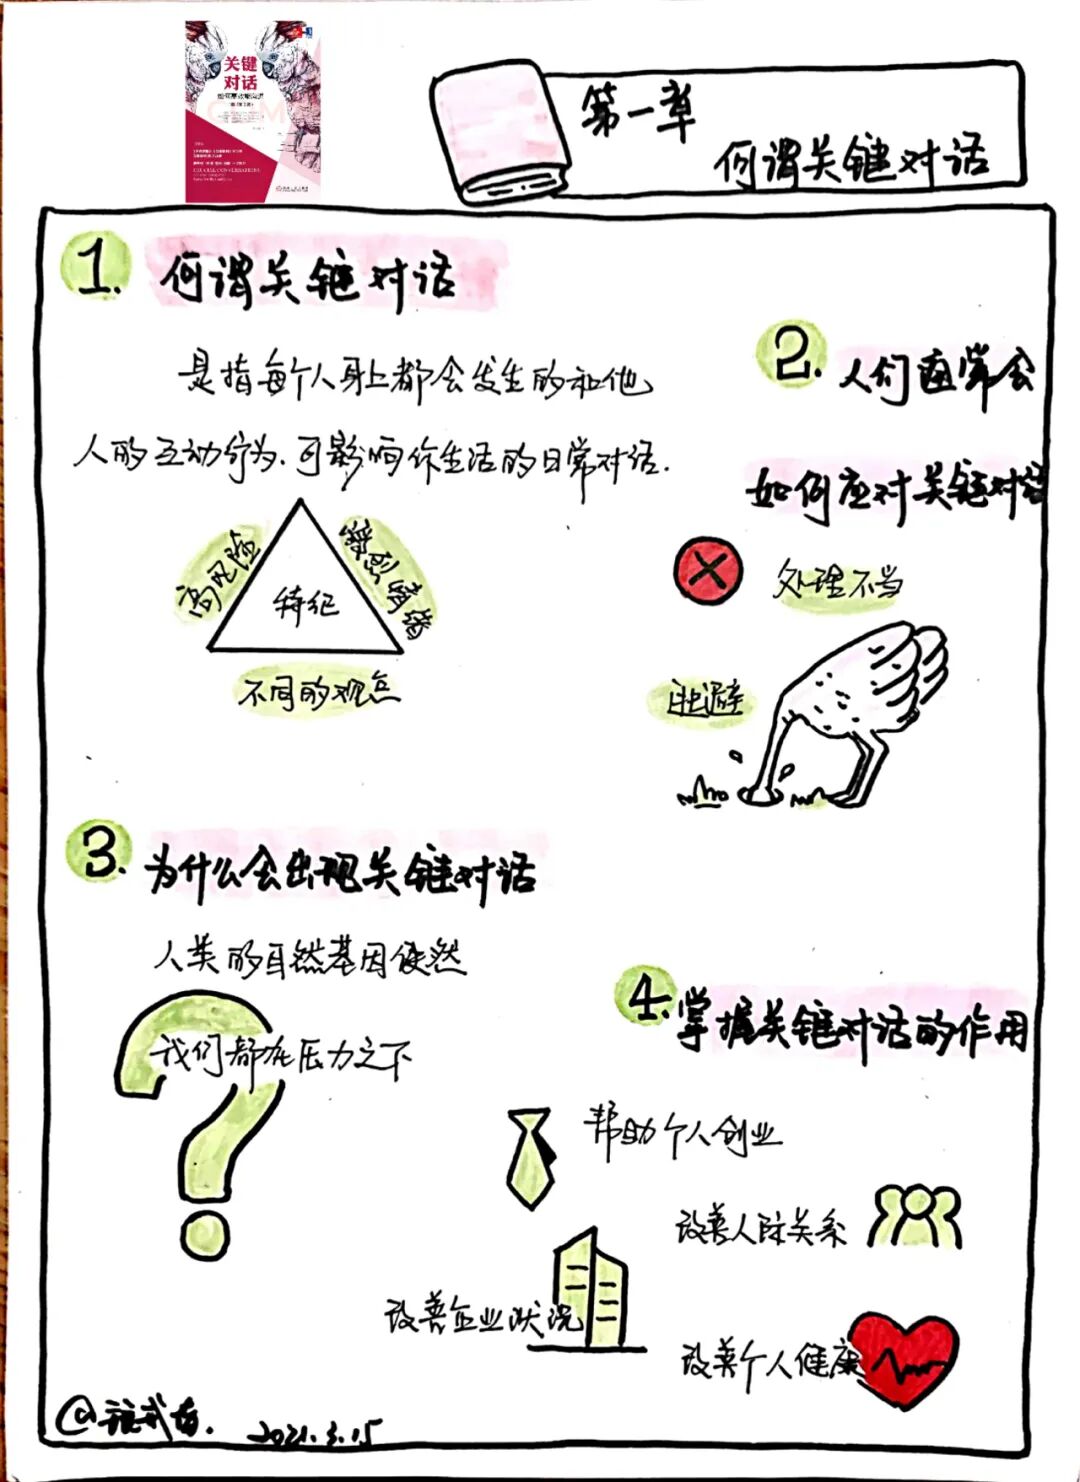 关键
对话
CRUCIAL CONVERSATIONS
第一章
何谓关键对话
1. 何谓关键对话
是指每个人身上都会发生的和他
人的互动行为.可影响你生活的日常对话.
高风险
激烈情绪
特征
不同的观点
2. 人们通常会
如何应对关键对话
处理不当
逃避
3. 为什么会出现关键对话
人类的自然基因使然
我们都在压力之下
4. 掌握关键对话的作用
帮助个人创业
改善人际关系
改善企业状况
改善个人健康
2021.3.15